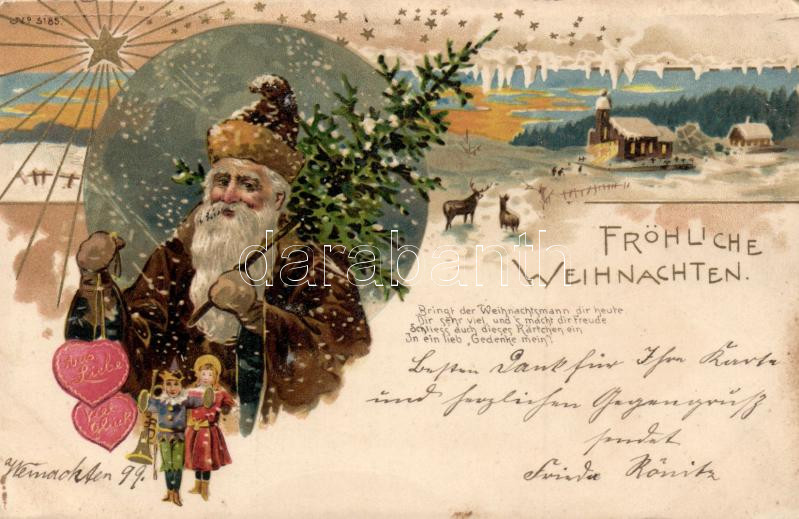 No 5185.
FRÖHLICHE
WEIHNACHTEN.
Bringt der Weihnachtsmann dir heute
Dir sehr viel, und's macht dir Freude
Schliess auch dieses Kärtchen ein
In ein lieb „Gedenke mein".
Besten Dank für Ihre Karte
und herzlichen Gegengruß
sendet
Frieda Rönitz
Aus
Liebe
Viel
Glück
Weinachten 99.
darabanth